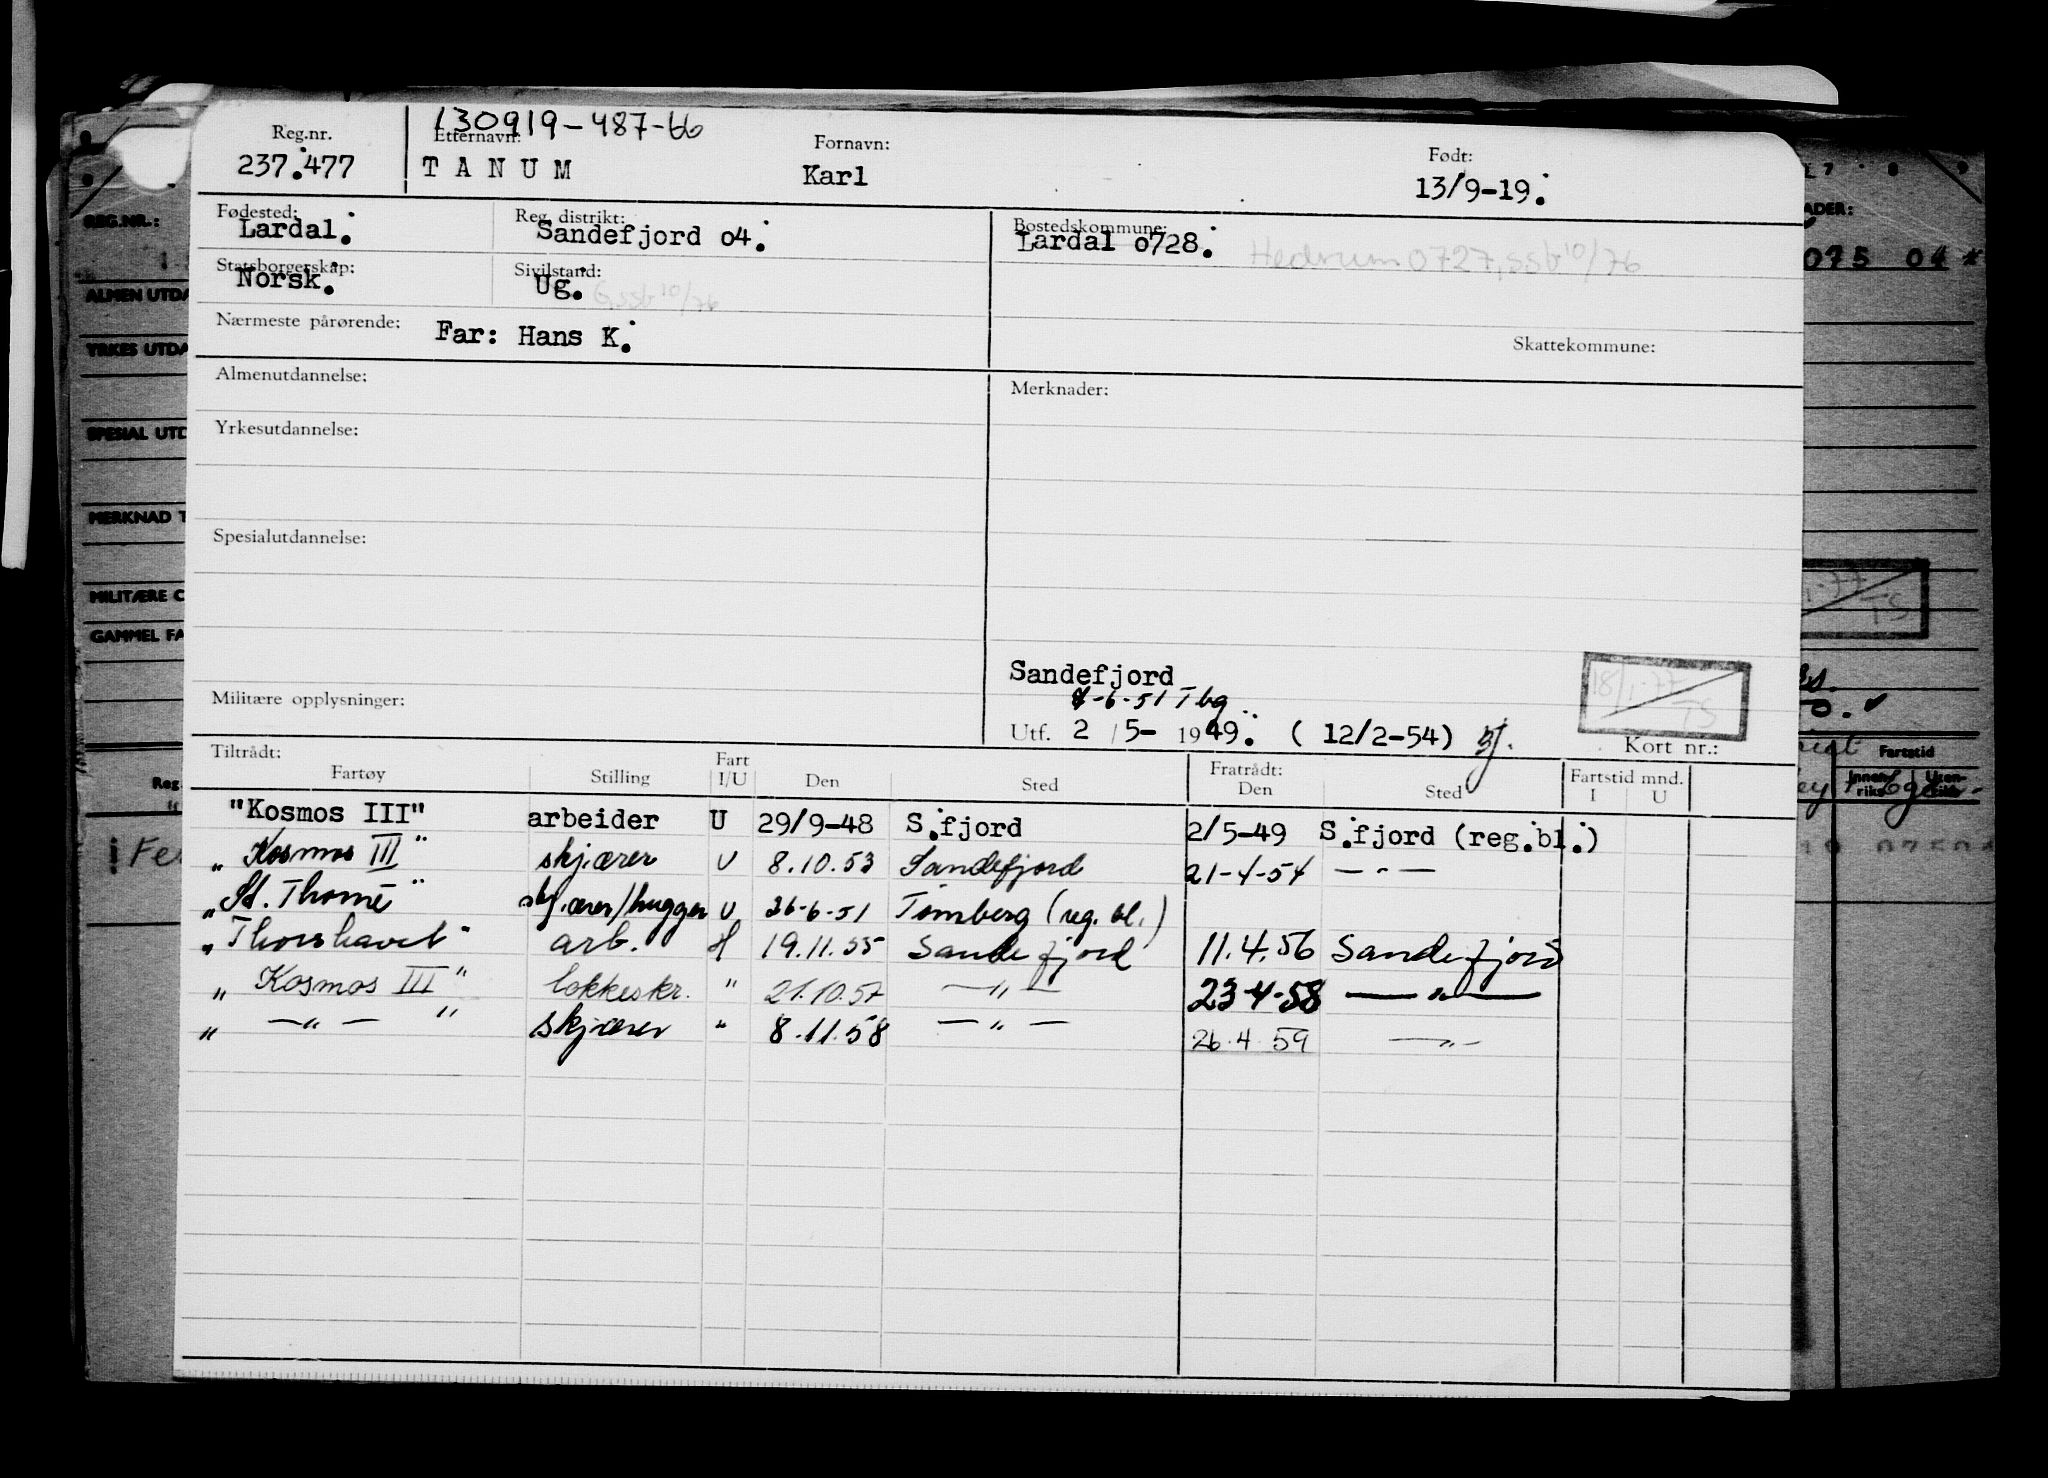 130919-487-66
Reg.nr. Etternavn: Fornavn: Født:
237.477 TANUM Karl 13/9-19.
Fødested: Reg. distrikt: Bostedskommune:
Lardal. Sandefjord o4. Lardal o728. Hedrum 0727, ssb 10/76
Statsborgerskap: Sivilstand:
Norsk. Ug. G, ssb 10/76
Nærmeste pårørende: Far: Hans K. Skattekommune:
Almenutdannelse: Merknader:
Yrkesutdannelse:
Spesialutdannelse:
Sandefjord
4-6-51 Tbg
18/1-77 TS
Militære opplysninger: Utf. 2/5- 1949. (12/2-54) Kort nr.:
Tiltrådt: Fratrådt: Fartstid mnd.
Fartøy Stilling Fart I/U Den Sted Den Sted I U
"Kosmos III" arbeider U 29/9-48 S.fjord 2/5-49 S.fjord (reg.bl.)
„Kosmos III" skjærer U 8.10.53 Sandefjord 21-4-54 — " —
„St. Thomé" skjærer/hugger U 26-6-51 Tønsberg (reg. bl.)
„Thorshavet" arb. H 19.11.55 Sandefjord 11.4.56 Sandefjord
„Kosmos III" lokkeskr. " 21.10.57 — " — 23-4-58 — " —
„ — " — " skjærer " 8.11.58 — " — 26.4.59 — " —
REG.NR.:
ALMEN UTDA
YRKES UTDA
SPESIAL UTD
MERKNAD T
MILITÆRE O
GAMMEL FA
Reg
ADER:
075 04 *
1-77 TS
Fartstid
Innen-riks Uten-riks